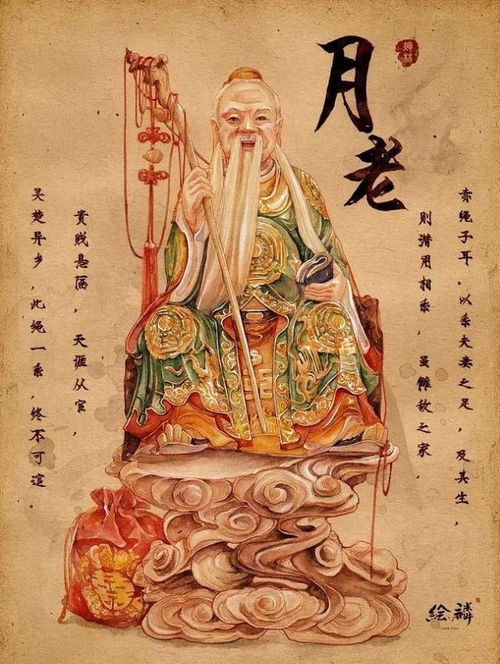 月老
赤绳子耳．以系夫妻之足，及其生，
则潜用相系，虽雠敌之家，
贵贱悬隔，天涯从宦，
吴楚异乡，此绳一系，终不可逭．
絵麟